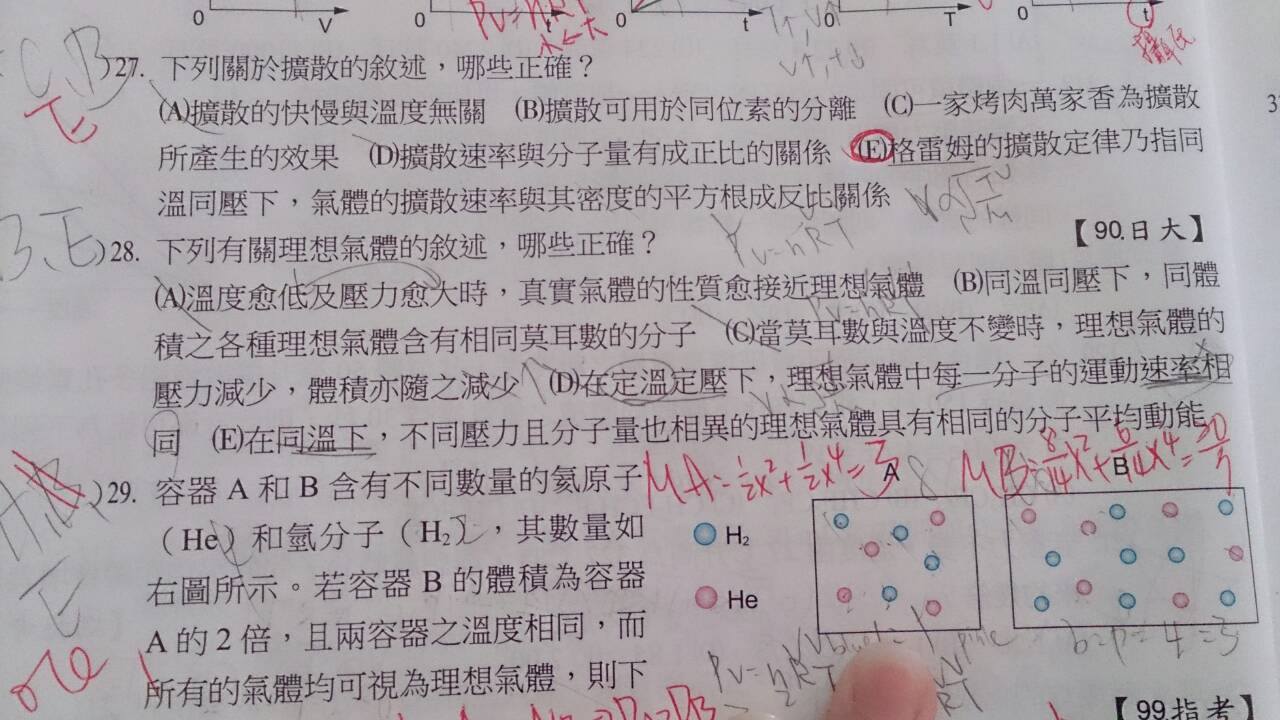 0 V 0 t 0 t 0 T 0 t
PV=nRT
T↑,V↑
C、B
E
)27. 下列關於擴散的敘述，哪些正確？
(A)擴散的快慢與溫度無關 (B)擴散可用於同位素的分離 (C)一家烤肉萬家香為擴散
所產生的效果 (D)擴散速率與分子量有成正比的關係 (E)格雷姆的擴散定律乃指同
溫同壓下，氣體的擴散速率與其密度的平方根成反比關係
PV=nRT
【90.日大】
B、E
)28. 下列有關理想氣體的敘述，哪些正確？
(A)溫度愈低及壓力愈大時，真實氣體的性質愈接近理想氣體 (B)同溫同壓下，同體
PV=nRT
積之各種理想氣體含有相同莫耳數的分子 (C)當莫耳數與溫度不變時，理想氣體的
壓力減少，體積亦隨之減少 (D)在定溫定壓下，理想氣體中每一分子的運動速率相
同 (E)在同溫下，不同壓力且分子量也相異的理想氣體具有相同的分子平均動能
MA=½x2+½x4=3
)29. 容器 A 和 B 含有不同數量的氦原子
A B
（He）和氫分子（H₂），其數量如
H₂
右圖所示。若容器 B 的體積為容器
He
E
A 的 2 倍，且兩容器之溫度相同，而
所有的氣體均可視為理想氣體，則下
【99.指考】